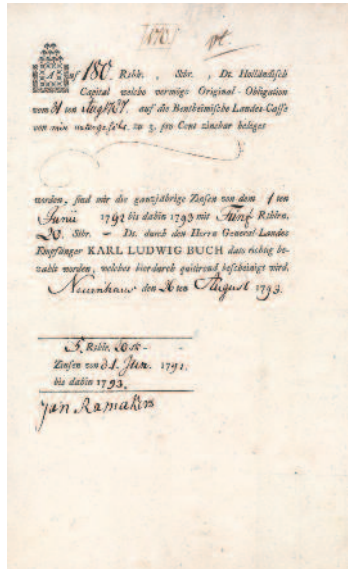 170 pt.
Auf 180. Rthlr. , Stbr. , Dt. Holländisch
Capital welche vermöge Original-Obligation
vom ten Aug. auf die Bentheimische Landes-Casse
von mir zu 3. pro Cent zinsbar beleget
worden, sind mir die ganzjährige Zinsen von dem 1 ten
Junii 1792 bis dahin 1793 mit Fünf Rthlrn.
20. Stbr. – Dt. durch den Herrn General-Landes
Empfänger KARL LUDWIG BUCH dato richtig be-
zahlt worden, welches hierdurch quitirend bescheinigt wird.
Neuenhaus den 26 ten August 1793.
5. Rthlr. 20 st -
Zinsen von d 1. Jun. 1792.
bis dahin 1793.
Jan Ramakers